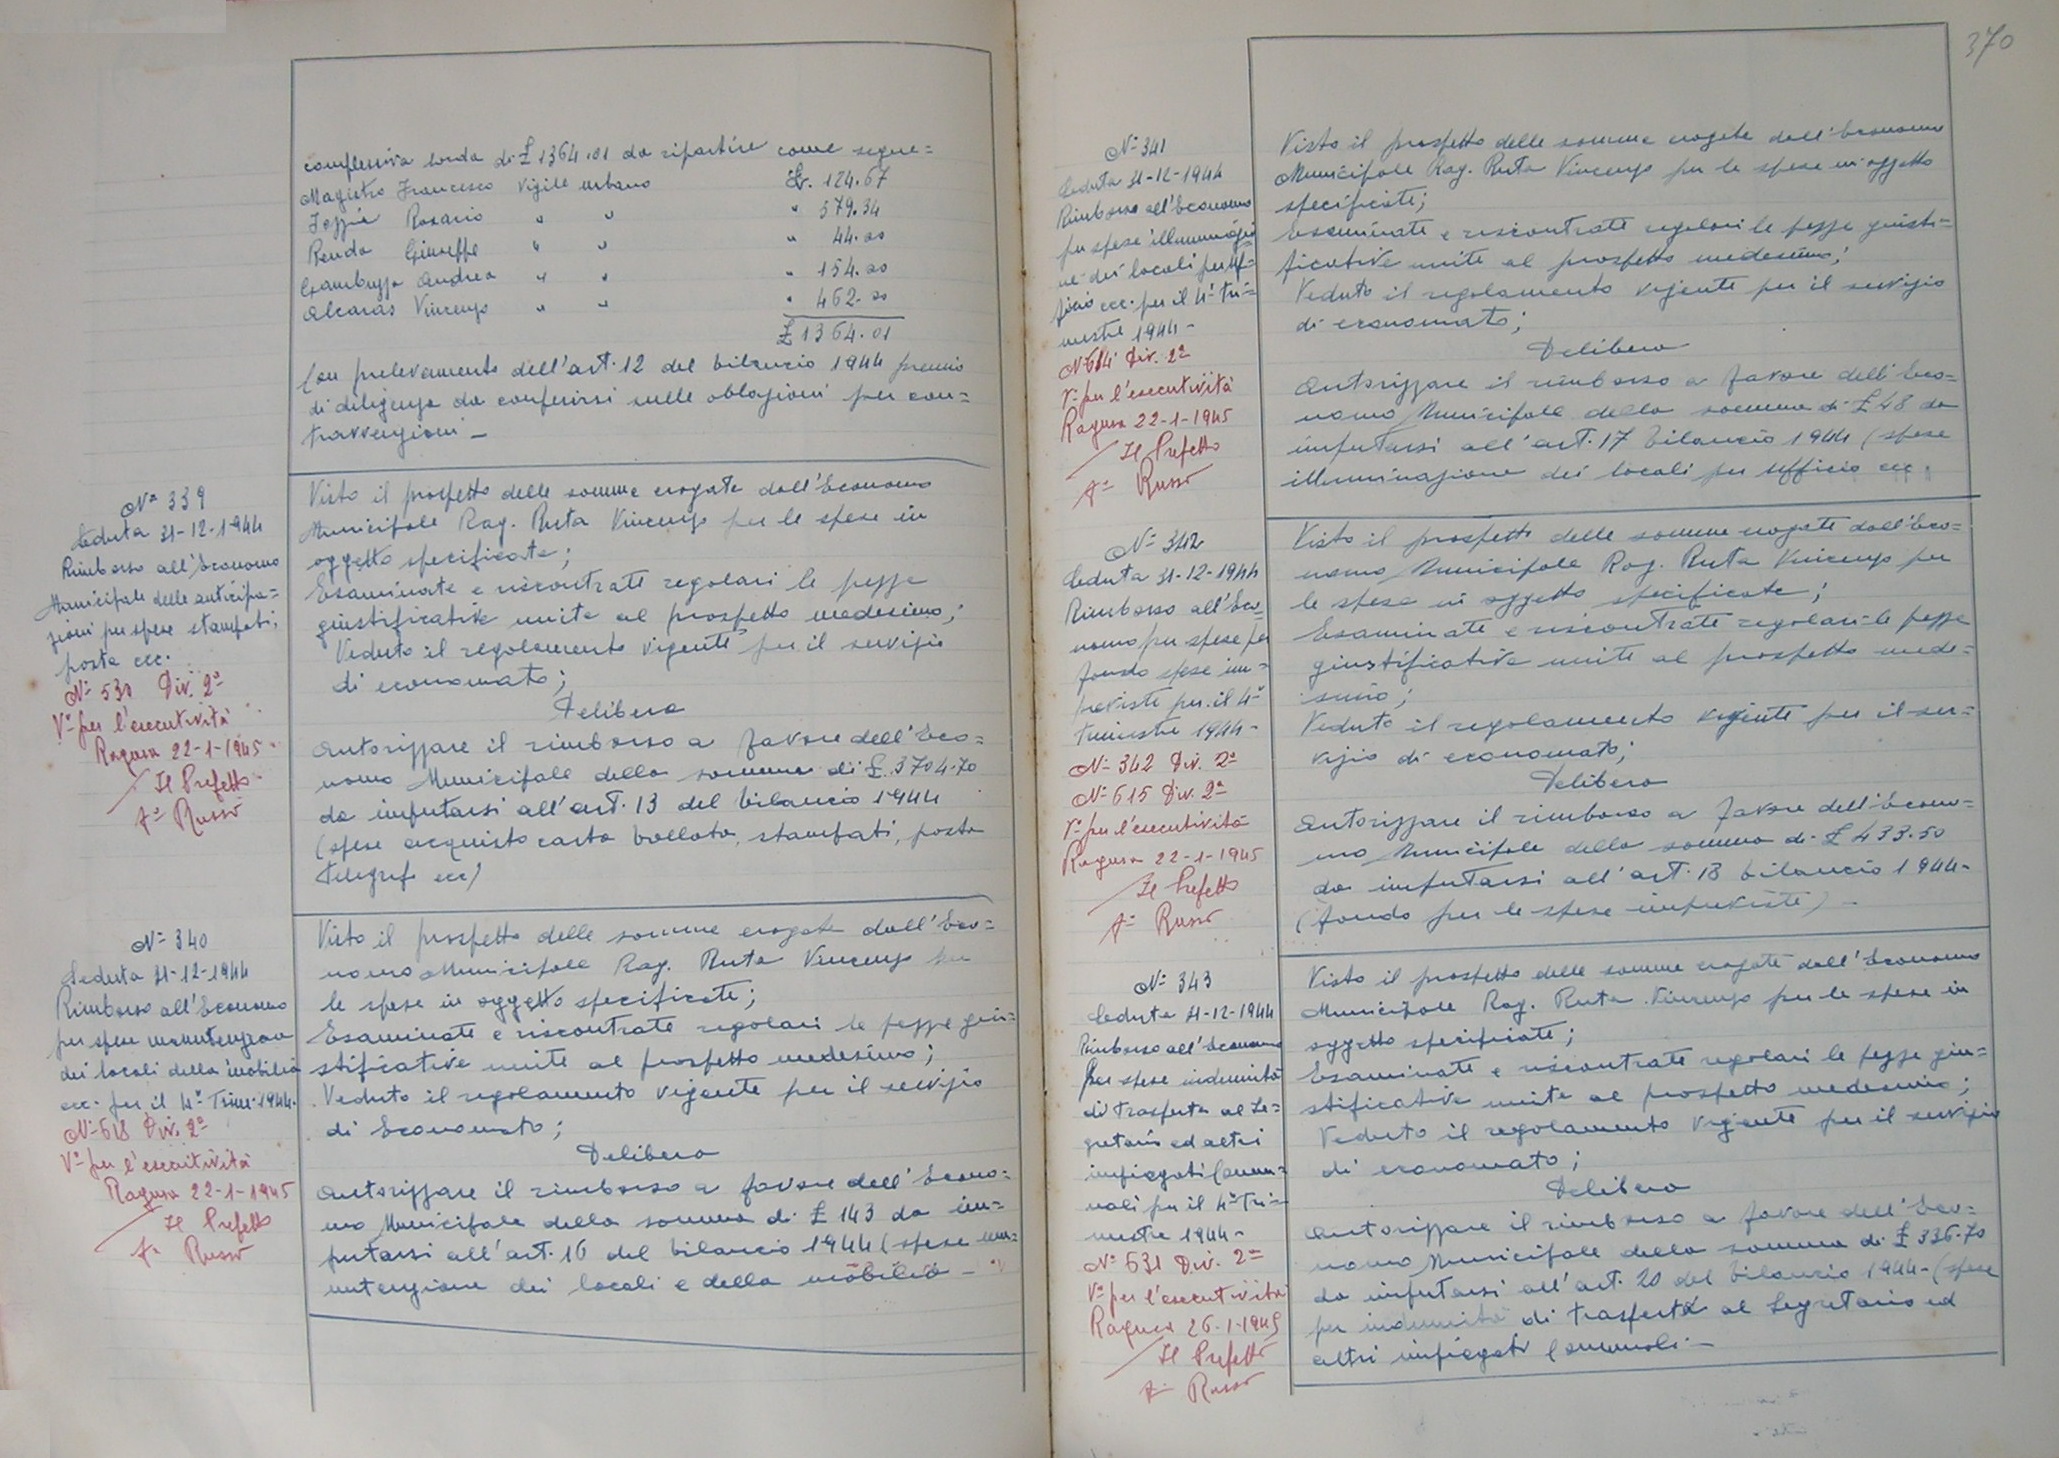 complessiva lorda di £ 1364.01 da ripartire come segue=
Magistro Francesco Vigile urbano Lr. 124.67
Iozzia Rosario " " " 579.34
Renda Giuseppe " " " 44.00
Gambuzza Andrea " " " 154.00
Alcaras Vincenzo " " " 462.00
£ 1364.01
Con prelevamento dell'art. 12 del bilancio 1944 premio
di diligenza da conferirsi sulle oblazioni per con=
travvenzioni –
N° 339
Seduta 31-12-1944
Rimborso all'Economo
Municipale delle anticipa=
zioni per spese stampati,
posta ecc.
N° 530 Div. 2ª
V° per l'esecutività
Ragusa 22-1-1945
Il Prefetto
F° Russo
Visto il prospetto delle somme erogate dall'Economo
Municipale Rag. Ruta Vincenzo per le spese in
oggetto specificate;
Esaminate e riscontrate regolari le pezze
giustificative unite al prospetto medesimo;
Veduto il regolamento vigente per il servizio
di economato;
Delibera
Autorizzare il rimborso a favore dell'Eco=
nomo Municipale della somma di £. 3704.70
da imputarsi all'art. 13 del bilancio 1944
(spese acquisto carta bollata, stampati, posta
telegraf. ecc)
N° 340
Seduta 31-12-1944
Rimborso all'Economo
per spese manutenzione
dei locali della mobilia
ecc. per il 4° Trim. 1944.
N° 618 Div. 2ª
V° per l'esecutività
Ragusa 22-1-1945
Il Prefetto
F° Russo
Visto il prospetto delle somme erogate dall'Eco=
nomo Municipale Rag. Ruta Vincenzo per
le spese in oggetto specificate;
Esaminate e riscontrate regolari le pezze giu=
stificative unite al prospetto medesimo;
Veduto il regolamento vigente per il servizio
di Economato;
Delibera
Autorizzare il rimborso a favore dell'Econo=
mo Municipale della somma di £ 143 da im=
putarsi all'art. 16 del bilancio 1944 (spese ma=
nutenzione dei locali e della mobilia –
370
N° 341
Seduta 31-12-1944
Rimborso all'Economo
per spese illuminazio
ne dei locali per uf=
ficio ecc. per il 4° Tri=
mestre 1944 –
N° 614 Div. 2ª
V° per l'esecutività
Ragusa 22-1-1945
Il Prefetto
F° Russo
Visto il prospetto delle somme erogate dall'Economo
Municipale Rag. Ruta Vincenzo per le spese in oggetto
specificate;
Esaminate e riscontrate regolari le pezze giusti=
ficative unite al prospetto medesimo;
Veduto il regolamento vigente per il servizio
di economato;
Delibera
Autorizzare il rimborso a favore dell'Eco=
nomo Municipale della somma di £ 48 da
imputarsi all'art. 17 bilancio 1944 (spese
illuminazione dei locali per ufficio ecc.
N° 342
Seduta 31-12-1944
Rimborso all'Eco=
nomo per spese per
fondo spese im=
previste per il 4°
trimestre 1944 –
N° 342 Div. 2ª
N° 615 Div. 2ª
V° per l'esecutività
Ragusa 22-1-1945
Il Prefetto
F° Russo
Visto il prospetto delle somme erogate dall'Eco=
nomo Municipale Rag. Ruta Vincenzo per
le spese in oggetto specificate;
Esaminate e riscontrate regolari le pezze
giustificative unite al prospetto mede=
simo;
Veduto il regolamento vigente per il ser=
vizio di economato;
Delibera
Autorizzare il rimborso a favore dell'Econo=
mo Municipale della somma di £ 433.50
da imputarsi all'art. 18 bilancio 1944-
(fondo per le spese impreviste) –
N° 343
Seduta 31-12-1944
Rimborso all'Economo
per spese indennità
di trasferta al Se=
gretario ed altri
impiegati Comu=
nali per il 4° Tri=
mestre 1944-
N° 631 Div. 2ª
V° per l'esecutività
Ragusa 26-1-1945
Il Prefetto
F° Russo
Visto il prospetto delle somme erogate dall'Economo
Municipale Rag. Ruta Vincenzo per le spese in
oggetto specificate;
Esaminate e riscontrate regolari le pezze giu=
stificative unite al prospetto medesimo;
Veduto il regolamento vigente per il servizio
di economato;
Delibera
Autorizzare il rimborso a favore dell'Eco=
nomo Municipale della somma di £ 336.70
da imputarsi all'art. 20 del bilancio 1944-(spese
per indennità di trasferta al Segretario ed
altri impiegati Comunali –